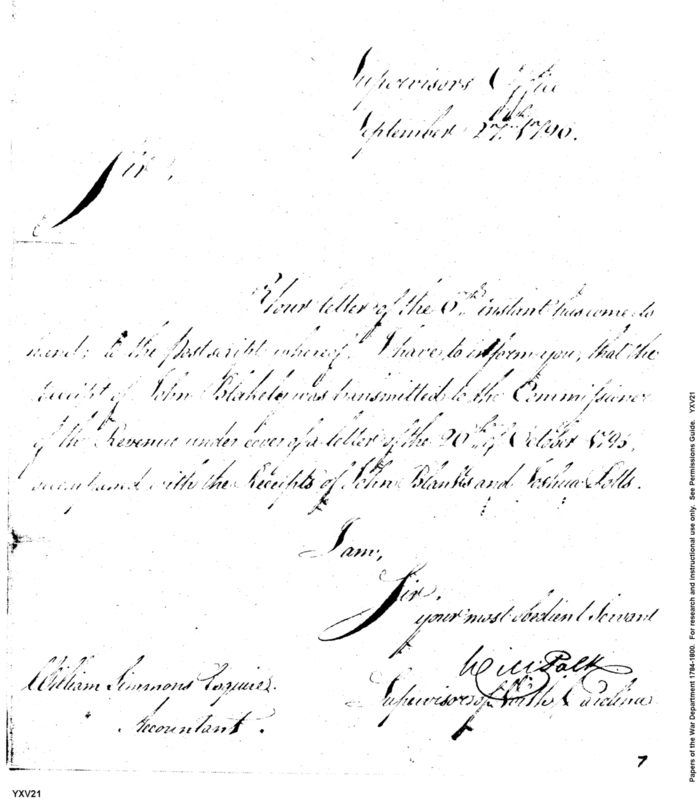 Supervisors Office
September 27th 1796.
Sir,
Your letter of the 6th instant has come to
hand; to the postscript whereof, I have to inform you, that the
receipt of John Blakeley was transmitted to the Commissioner
of the Revenue under cover of a letter of the 20th of October 1795,
accompanied with the Receipts of John Blanks and Joshua Potts.
I am,
Sir,
your most obedient Servant
Will Polk
Supervisor of North Carolina
William Simmons Esquire.
Accountant.
7
YXV21
Papers of the War Department 1784-1800. For research and instructional use only. See Permissions Guide. YXV21